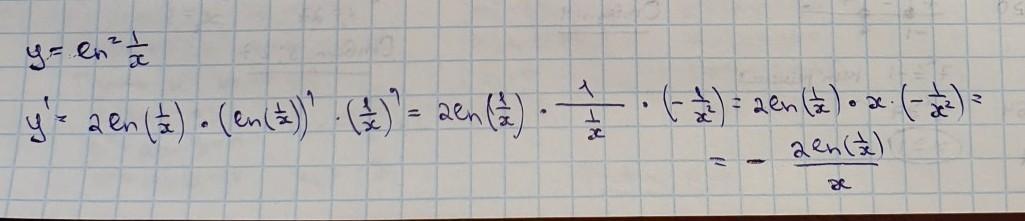 y = ln² 1/x
y' = 2ln(1/x) · (ln(1/x))' · (1/x)' = 2ln(1/x) · 1/(1/x) · (-1/x²) = 2ln(1/x) · x · (-1/x²) =
= - 2ln(1/x)/x